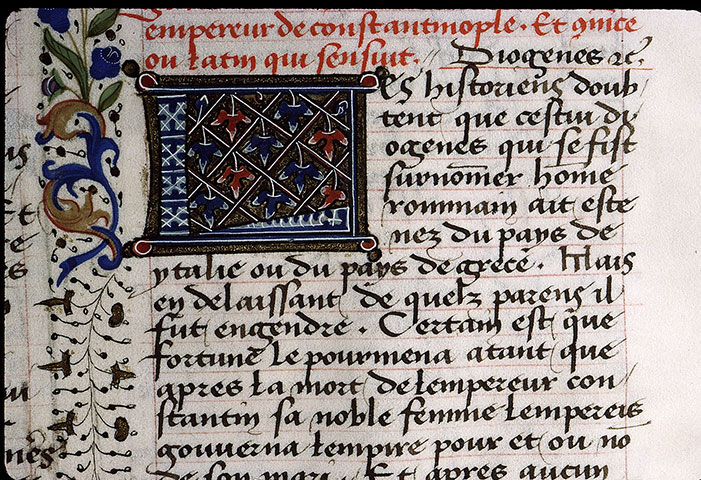 empereur de constantinople. Et 9mēce
ou latin qui sensuit. Diogenes ꝛc.
LEs historiens doub
tent que cestui di
ogenes qui se fist
surnōmer home
rommain ait este
nez du pays de
ytalie ou du pays de grece. Mais
en delaissant de quelz parens il
fut engendre. Certain est que
fortune le pourmena atant que
apres la mort de lempereur con
stantin sa noble femme lempereis
gouuerna lempire pour et ou nō
de son mari. Et apres aucun